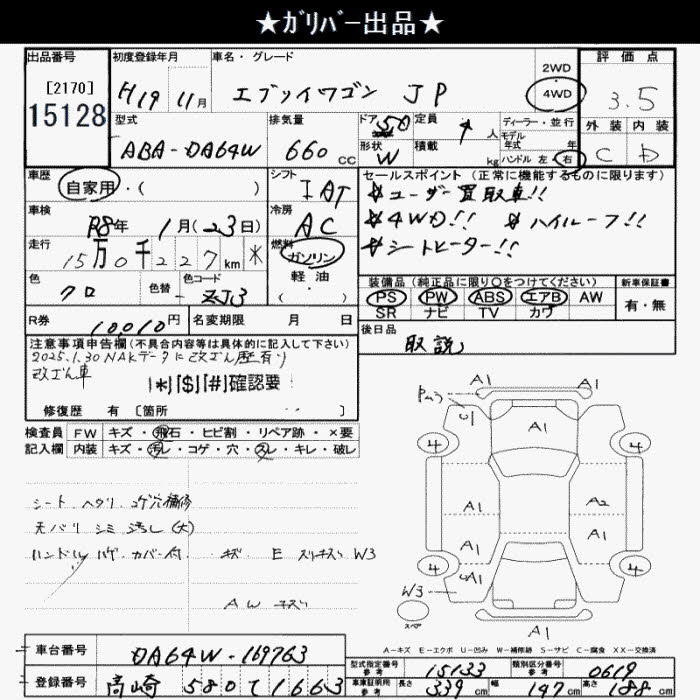 ★ガリバー出品★
出品番号 初度登録年月 車名・グレード 2WD 4WD 評価点
[2170] H19 11月 エブリイワゴン JP 3.5
15128
型式 排気量 ドア 5D 定員 4人 ディーラー・並行 外装 内装
ABA-DA64W 660cc 形状 W 積載 kg モデル年式 年 C D
ハンドル 左・右
車歴 自家用・( ) シフト IAT セールスポイント(正常に機能するものに限ります)
車検 R8年 1月(23日) 冷房 AC ★ユーザー買取車!!
★4WD!! ★ハイルーフ!!
走行 15万0千227km * 燃料 ガソリン 軽油 ・( ) ★シートヒーター!!
色 クロ 色替 - 色コード ZJ3 装備品(純正品に限り○をつけてください) 新車保証書
PS PW ABS エアB AW 有・無
SR ナビ TV カワ
R券 10010円 名変期限 月 日 後日品
取説
注意事項申告欄(不具合内容等は具体的に記入して下さい)
2025.1.30 NAKデータに改ざん歴有り
改ざん車
[*][$][#]確認要
修復歴 有 [箇所 ]
検査員 FW キズ・飛石・ヒビ割・リペア跡・×要
記入欄 内装 キズ・汚レ・コゲ・穴・スレ・キレ・破レ
シート ヘタリ コゲ穴補修
天バリ シミ 汚レ(大)
ハンドル ハゲ カバー付 キズ E スリキズ W3
AW キズ
A1
A1
U1
A1
4 4
A1 A2
A1 A1
4 4
A1
W3
スペア
A1
A-キズ E-エクボ U-凹み W-補修跡 S-サビ C-腐食 XX-交換済
車台番号 DA64W-169763
登録番号 高崎 580 て 1663
型式指定番号 参考 15133 類別区分番号 参考 0619
車車証明用 参考 長さ 339cm 幅 147cm 高さ 188cm